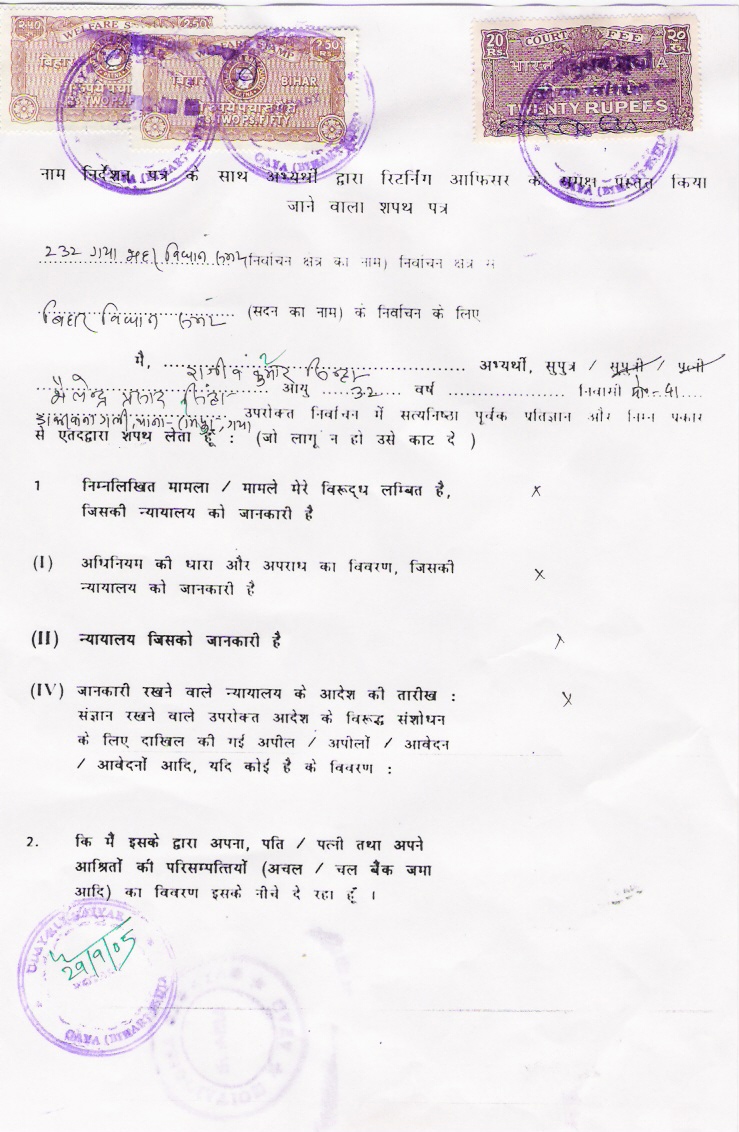 WELFARE STAMP 2.50
बिहार BIHAR
RS. TWO PS. FIFTY
20 RS COURT FEE २० रु
TWENTY RUPEES
GAYA (BIHAR)
नाम निर्देशन पत्र के साथ अभ्यर्थी द्वारा रिटर्निंग आफिसर के समक्ष प्रस्तुत किया
जाने वाला शपथ पत्र
232 गया (निर्वाचन क्षेत्र का नाम) निर्वाचन क्षेत्र से
बिहार विधान सभा (सदन का नाम) के निर्वाचन के लिए
मै, राजीव कुमार सिन्हा अभ्यर्थी, सुपुत्र / सुपुत्री / पत्नी
शैलेन्द्र प्रसाद सिन्हा आयु 32 वर्ष निवासी 41
गली, गया उपरोक्त निर्वाचन में सत्यनिष्ठा पूर्वक प्रतिज्ञान और निम्न प्रकार
से एतदद्वारा शपथ लेता हूँ : (जो लागू न हो उसे काट दे )
1 निम्नलिखित मामला / मामले मेरे विरूद्ध लम्बित है, x
जिसकी न्यायालय को जानकारी है
(I) अधिनियम की धारा और अपराध का विवरण, जिसकी x
न्यायालय को जानकारी है
(II) न्यायालय जिसको जानकारी है x
(IV) जानकारी रखने वाले न्यायालय के आदेश की तारीख : x
संज्ञान रखने वाले उपरोक्त आदेश के विरूद्ध संशोधन
के लिए दाखिल की गई अपील / अपीलों / आवेदन
/ आवेदनों आदि, यदि कोई है के विवरण :
2. कि मैं इसके द्वारा अपना, पति / पत्नी तथा अपने
आश्रितों की परिसम्पत्तियों (अचल / चल बैंक जमा
आदि) का विवरण इसके नीचे दे रहा हूँ ।
29/9/05
GAYA (BIHAR)